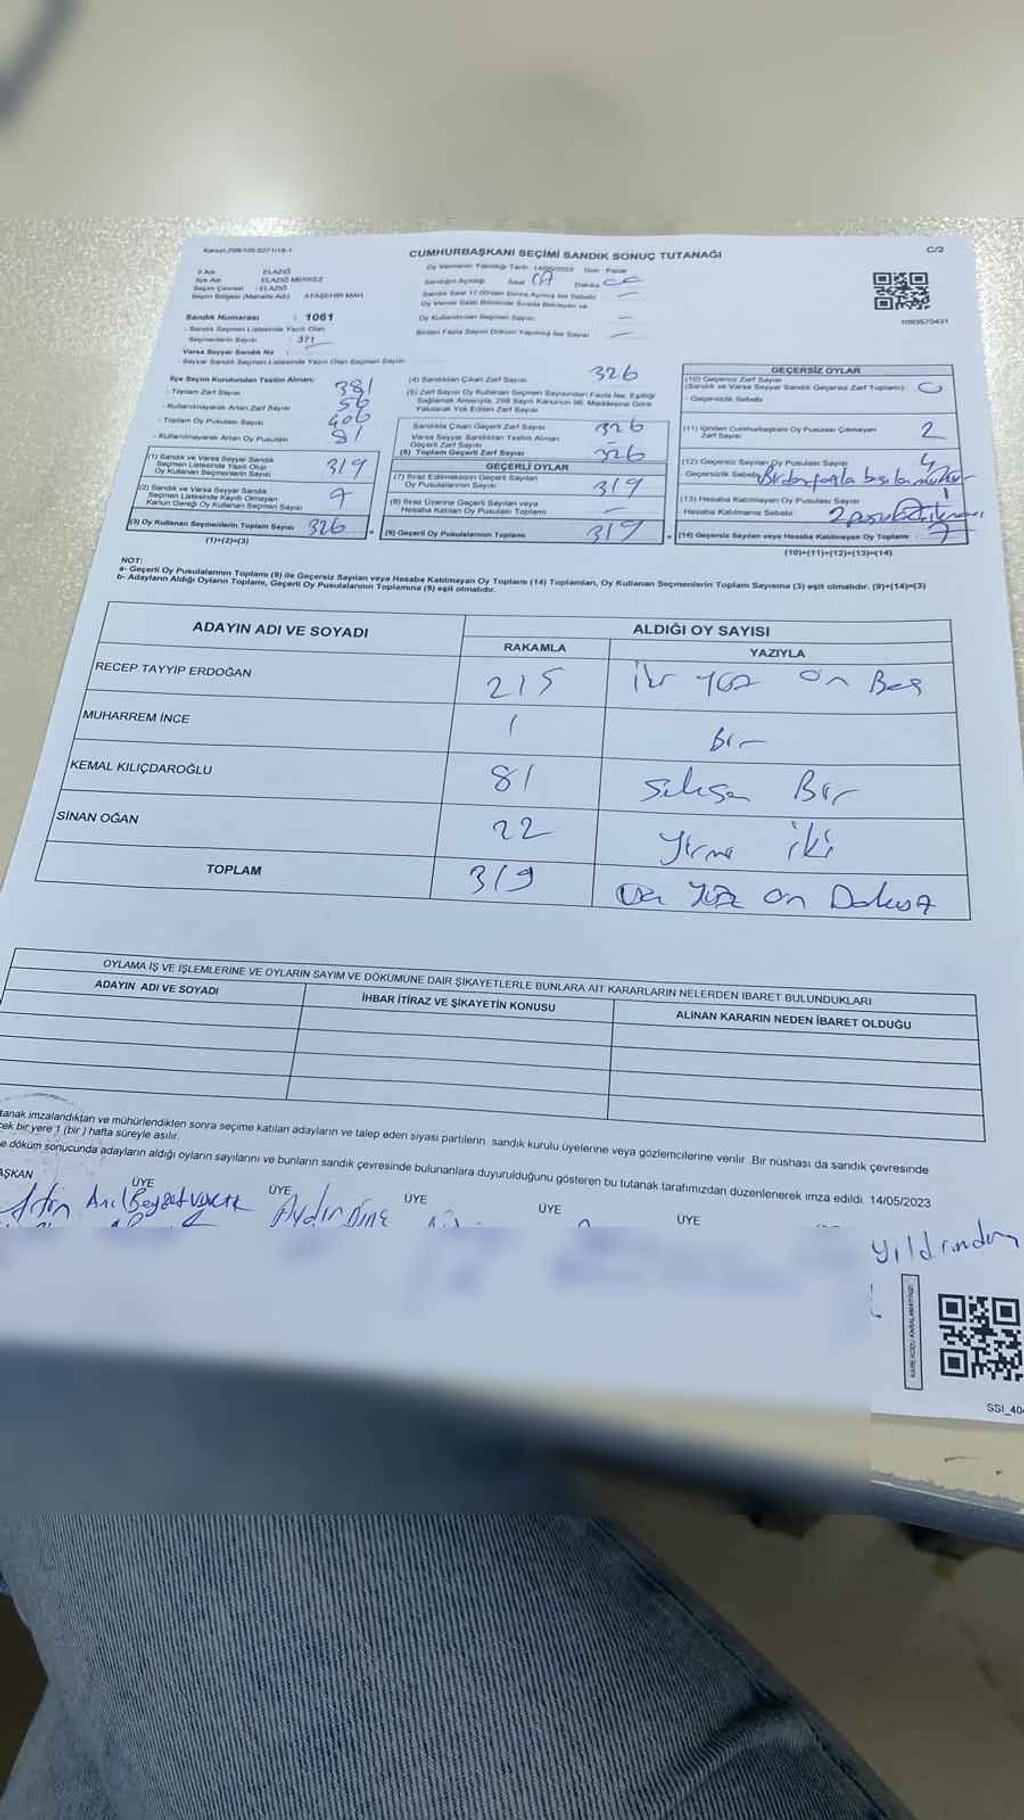 Kanun:298/105,6271/18-1
CUMHURBAŞKANI SEÇİMİ SANDIK SONUÇ TUTANAĞI
C/2
İl Adı : ELAZIĞ
İlçe Adı : ELAZIĞ MERKEZ
Seçim Çevresi : ELAZIĞ
Seçim Bölgesi (Mahalle Adı) ATAŞEHİR MAH
Sandık Numarası : 1061
- Sandık Seçmen Listesinde Yazılı Olan
Seçmenlerin Sayısı : 371
Varsa Seyyar Sandık No :
- Seyyar Sandık Seçmen Listesinde Yazılı Olan Seçmen Sayısı :
Oy Vermenin Yapıldığı Tarih: 14/05/2023 Gün : Pazar
Sandığın Açıldığı Saat Dakika
Sandık Saat 17.00'den Sonra Açılmış İse Sebebi
Oy Verme Saati Bitiminde Sırada Bekleyen ve
Oy Kullandırılan Seçmen Sayısı
Birden Fazla Sayım Döküm Yapılmış İse Sayısı
1093570431
İlçe Seçim Kurulundan Teslim Alınan;
- Toplam Zarf Sayısı 381
- Kullanılmayarak Artan Zarf Sayısı
- Toplam Oy Pusulası Sayısı 400
- Kullanılmayarak Artan Oy Pusulası 81
(1) Sandık ve Varsa Seyyar Sandık
Seçmen Listesinde Yazılı Olup
Oy Kullanan Seçmenlerin Sayısı 319
(2) Sandık ve Varsa Seyyar Sandık
Seçmen Listesinde Kayıtlı Olmayan
Kanun Gereği Oy Kullanan Seçmen Sayısı 7
(3) Oy Kullanan Seçmenlerin Toplam Sayısı 326
(1)+(2)=(3)
(4) Sandıktan Çıkan Zarf Sayısı 326
(5) Zarf Sayısı Oy Kullanan Seçmen Sayısından Fazla İse, Eşitliği
Sağlamak Amacıyla, 298 Sayılı Kanunun 98. Maddesine Göre
Yakılarak Yok Edilen Zarf Sayısı
Sandıkta Çıkan Geçerli Zarf Sayısı 326
Varsa Seyyar Sandıktan Teslim Alınan
Geçerli Zarf Sayısı
(6) Toplam Geçerli Zarf Sayısı 326
GEÇERLİ OYLAR
(7) İtiraz Edilmeksizin Geçerli Sayılan
Oy Pusulalarının Sayısı 319
(8) İtiraz Üzerine Geçerli Sayılan veya
Hesaba Katılan Oy Pusulası Toplamı
(9) Geçerli Oy Pusulalarının Toplamı 319
GEÇERSİZ OYLAR
(10) Geçersiz Zarf Sayısı
(Sandık ve Varsa Seyyar Sandık Geçersiz Zarf Toplamı)
- Geçersizlik Sebebi
(11) İçinden Cumhurbaşkanı Oy Pusulası Çıkmayan
Zarf Sayısı 2
(12) Geçersiz Sayılan Oy Pusulası Sayısı 4
Geçersizlik Sebebi Birden fazla
(13) Hesaba Katılmayan Oy Pusulası Sayısı 1
Hesaba Katılmama Sebebi 2 pusula
(14) Geçersiz Sayılan veya Hesaba Katılmayan Oy Toplamı 7
(10)+(11)+(12)+(13)=(14)
NOT:
a- Geçerli Oy Pusulalarının Toplamı (9) ile Geçersiz Sayılan veya Hesaba Katılmayan Oy Toplamı (14) Toplamları, Oy Kullanan Seçmenlerin Toplam Sayısına (3) eşit olmalıdır. (9)+(14)=(3)
b- Adayların Aldığı Oyların Toplamı, Geçerli Oy Pusulalarının Toplamına (9) eşit olmalıdır.
ADAYIN ADI VE SOYADI
ALDIĞI OY SAYISI
RAKAMLA YAZIYLA
RECEP TAYYİP ERDOĞAN 215 iki yüz on Beş
MUHARREM İNCE 1 Bir
KEMAL KILIÇDAROĞLU 81 seksen Bir
SİNAN OĞAN 22 yirmi iki
TOPLAM 319 üç yüz on Dokuz
OYLAMA İŞ VE İŞLEMLERİNE VE OYLARIN SAYIM VE DÖKÜMÜNE DAİR ŞİKAYETLERLE BUNLARA AİT KARARLARIN NELERDEN İBARET BULUNDUKLARI
ADAYIN ADI VE SOYADI
İHBAR İTİRAZ VE ŞİKAYETİN KONUSU
ALINAN KARARIN NEDEN İBARET OLDUĞU
tanak imzalandıktan ve mühürlendikten sonra seçime katılan adayların ve talep eden siyasi partilerin sandık kurulu üyelerine veya gözlemcilerine verilir. Bir nüshası da sandık çevresinde
ek bir yere 1 (bir) hafta süreyle asılır.
e döküm sonucunda adayların aldığı oyların sayılarını ve bunların sandık çevresinde bulunanlara duyurulduğunu gösteren bu tutanak tarafımızdan düzenlenerek imza edildi. 14/05/2023
AŞKAN ÜYE ÜYE ÜYE ÜYE ÜYE
Anıl Aydın
Yıldırım
KARE KODU KARALAMAYINIZ!
SSI_40